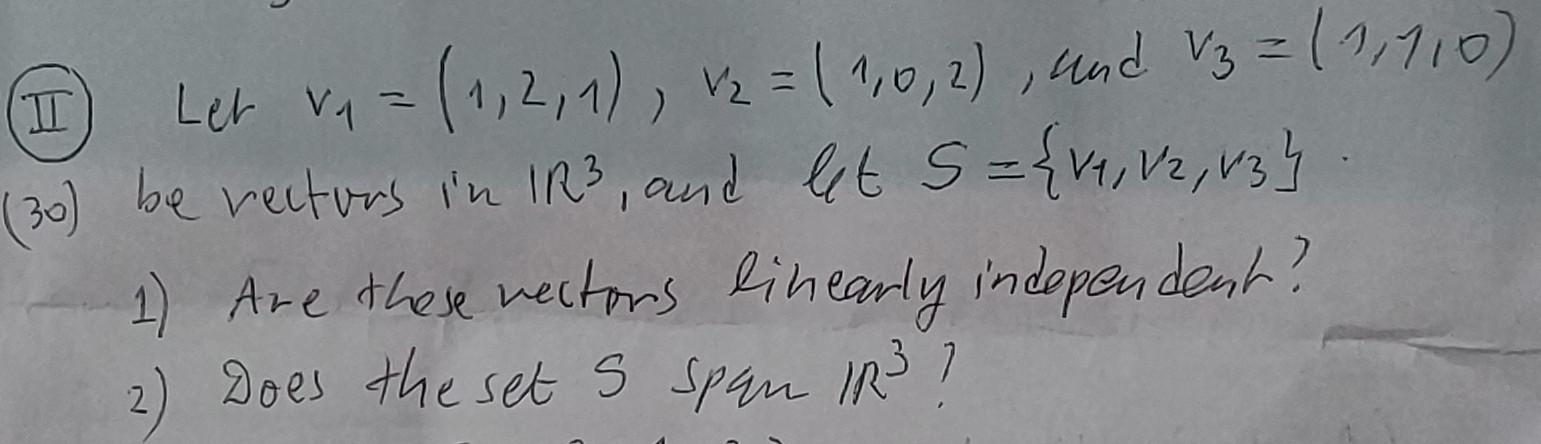 II Let v1 = (1,2,1), v2 = (1,0,2), and v3 = (1,1,0)
(30) be vectors in IR³, and let S = {v1, v2, v3}.
1) Are these vectors linearly independent?
2) Does the set S span IR³?